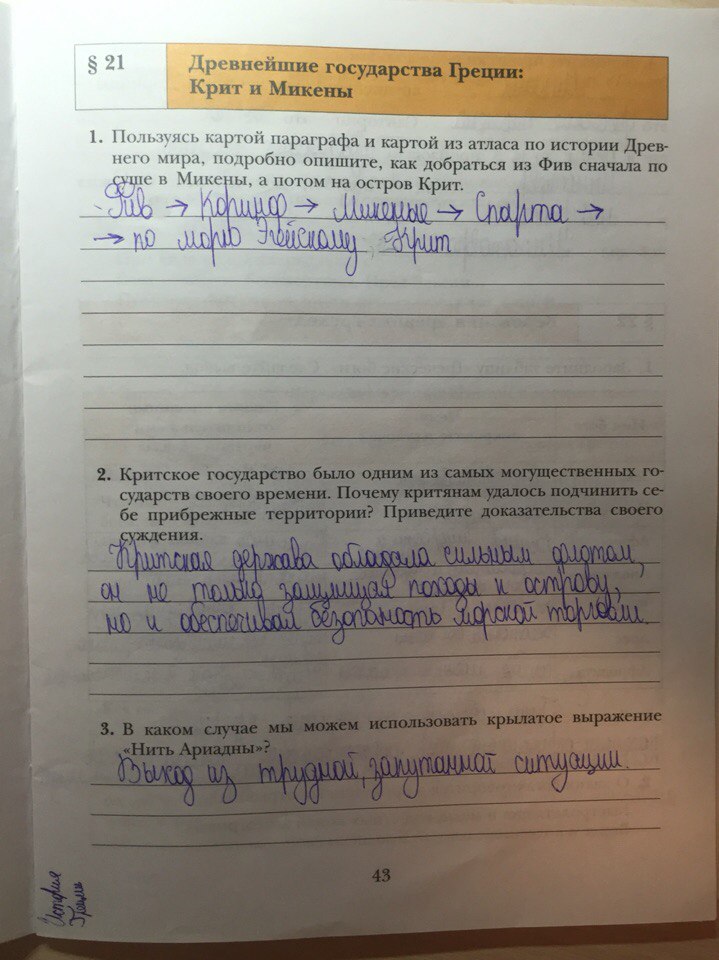 § 21
Древнейшие государства Греции:
Крит и Микены
1. Пользуясь картой параграфа и картой из атласа по истории Древ-
него мира, подробно опишите, как добраться из Фив сначала по
суше в Микены, а потом на остров Крит.
- Фив → Коринф → Микены → Спарта →
→ по морю Эгейскому Крит
2. Критское государство было одним из самых могущественных го-
сударств своего времени. Почему критянам удалось подчинить се-
бе прибрежные территории? Приведите доказательства своего
суждения.
Критская держава обладала сильным флотом,
он не только защищая походы к острову,
но и обеспечивая безопасность морской торговли.
3. В каком случае мы можем использовать крылатое выражение
«Нить Ариадны»?
Выход из трудной, запутанной ситуации.
43
История
Греции